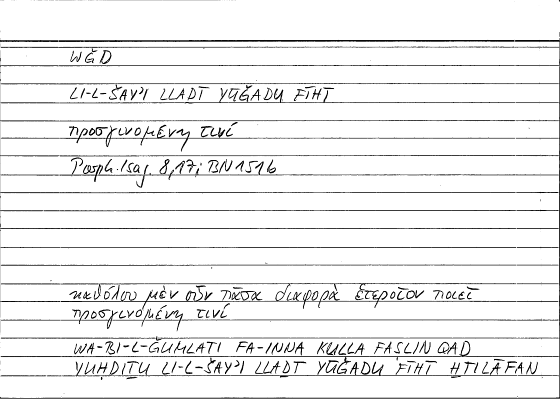 WǦD
LI-L-ŠAYʾI LLAḎĪ YŪǦADU FĪHĪ
προσγινομένη τινί
Porph. Isag. 8,17; BN 151b
καθόλου μὲν οὖν πᾶσα διαφορὰ ἑτεροῖον ποιεῖ
προσγινομένη τινί
WA-BI-L-ǦUMLATI FA-INNA KULLA FAṢLIN QAD
YUḤDIṮU LI-L-ŠAYʾI LLAḎĪ YŪǦADU FĪHĪ ḪTILĀFAN